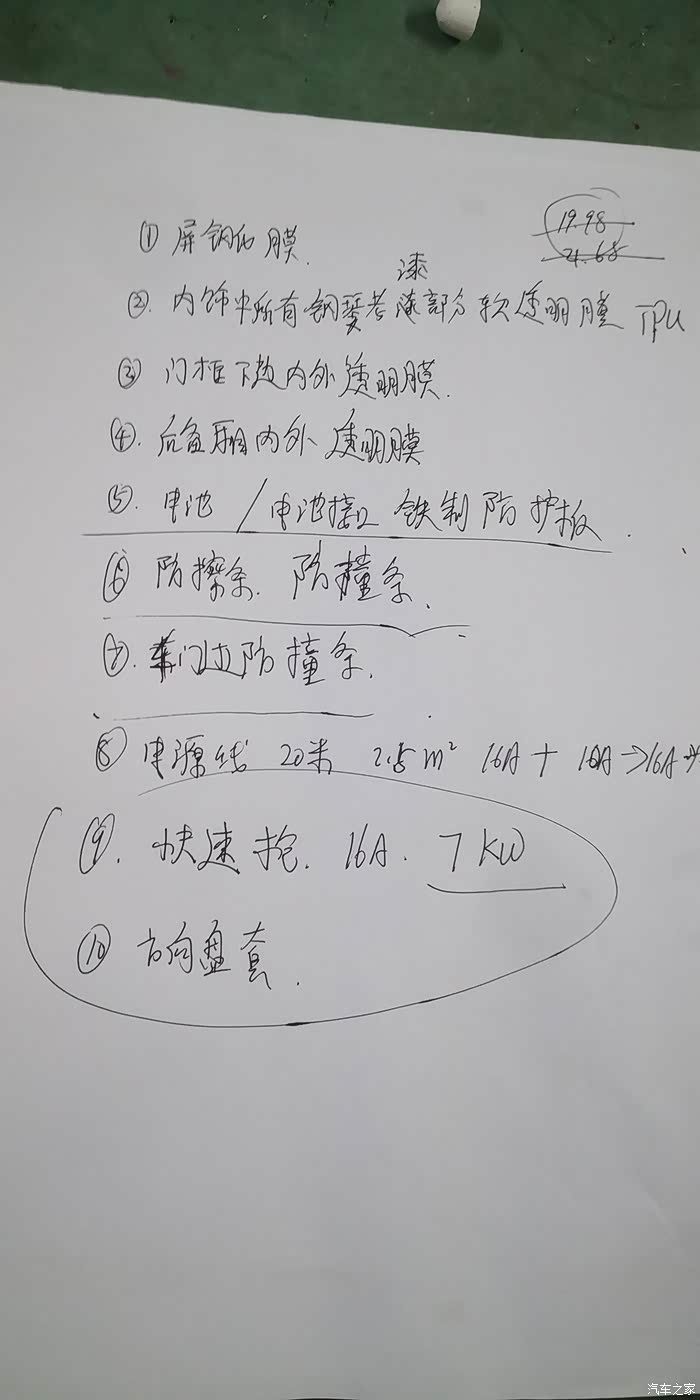 19.98
21.68
① 屏钢化膜.
漆
②. 内饰中所有钢琴考漆部分软透明膜 TPU
③ 门框下边内外透明膜.
④. 后备箱内外透明膜
⑤. 电池/电池接口 铁制防护板.
⑥ 防擦条. 防撞条.
⑦. 车门边防撞条.
⑧ 电源线 20米 2.5m² 16A+10A→16A
⑨. 快速枪. 16A. 7KW
⑩ 方向盘套.
汽车之家